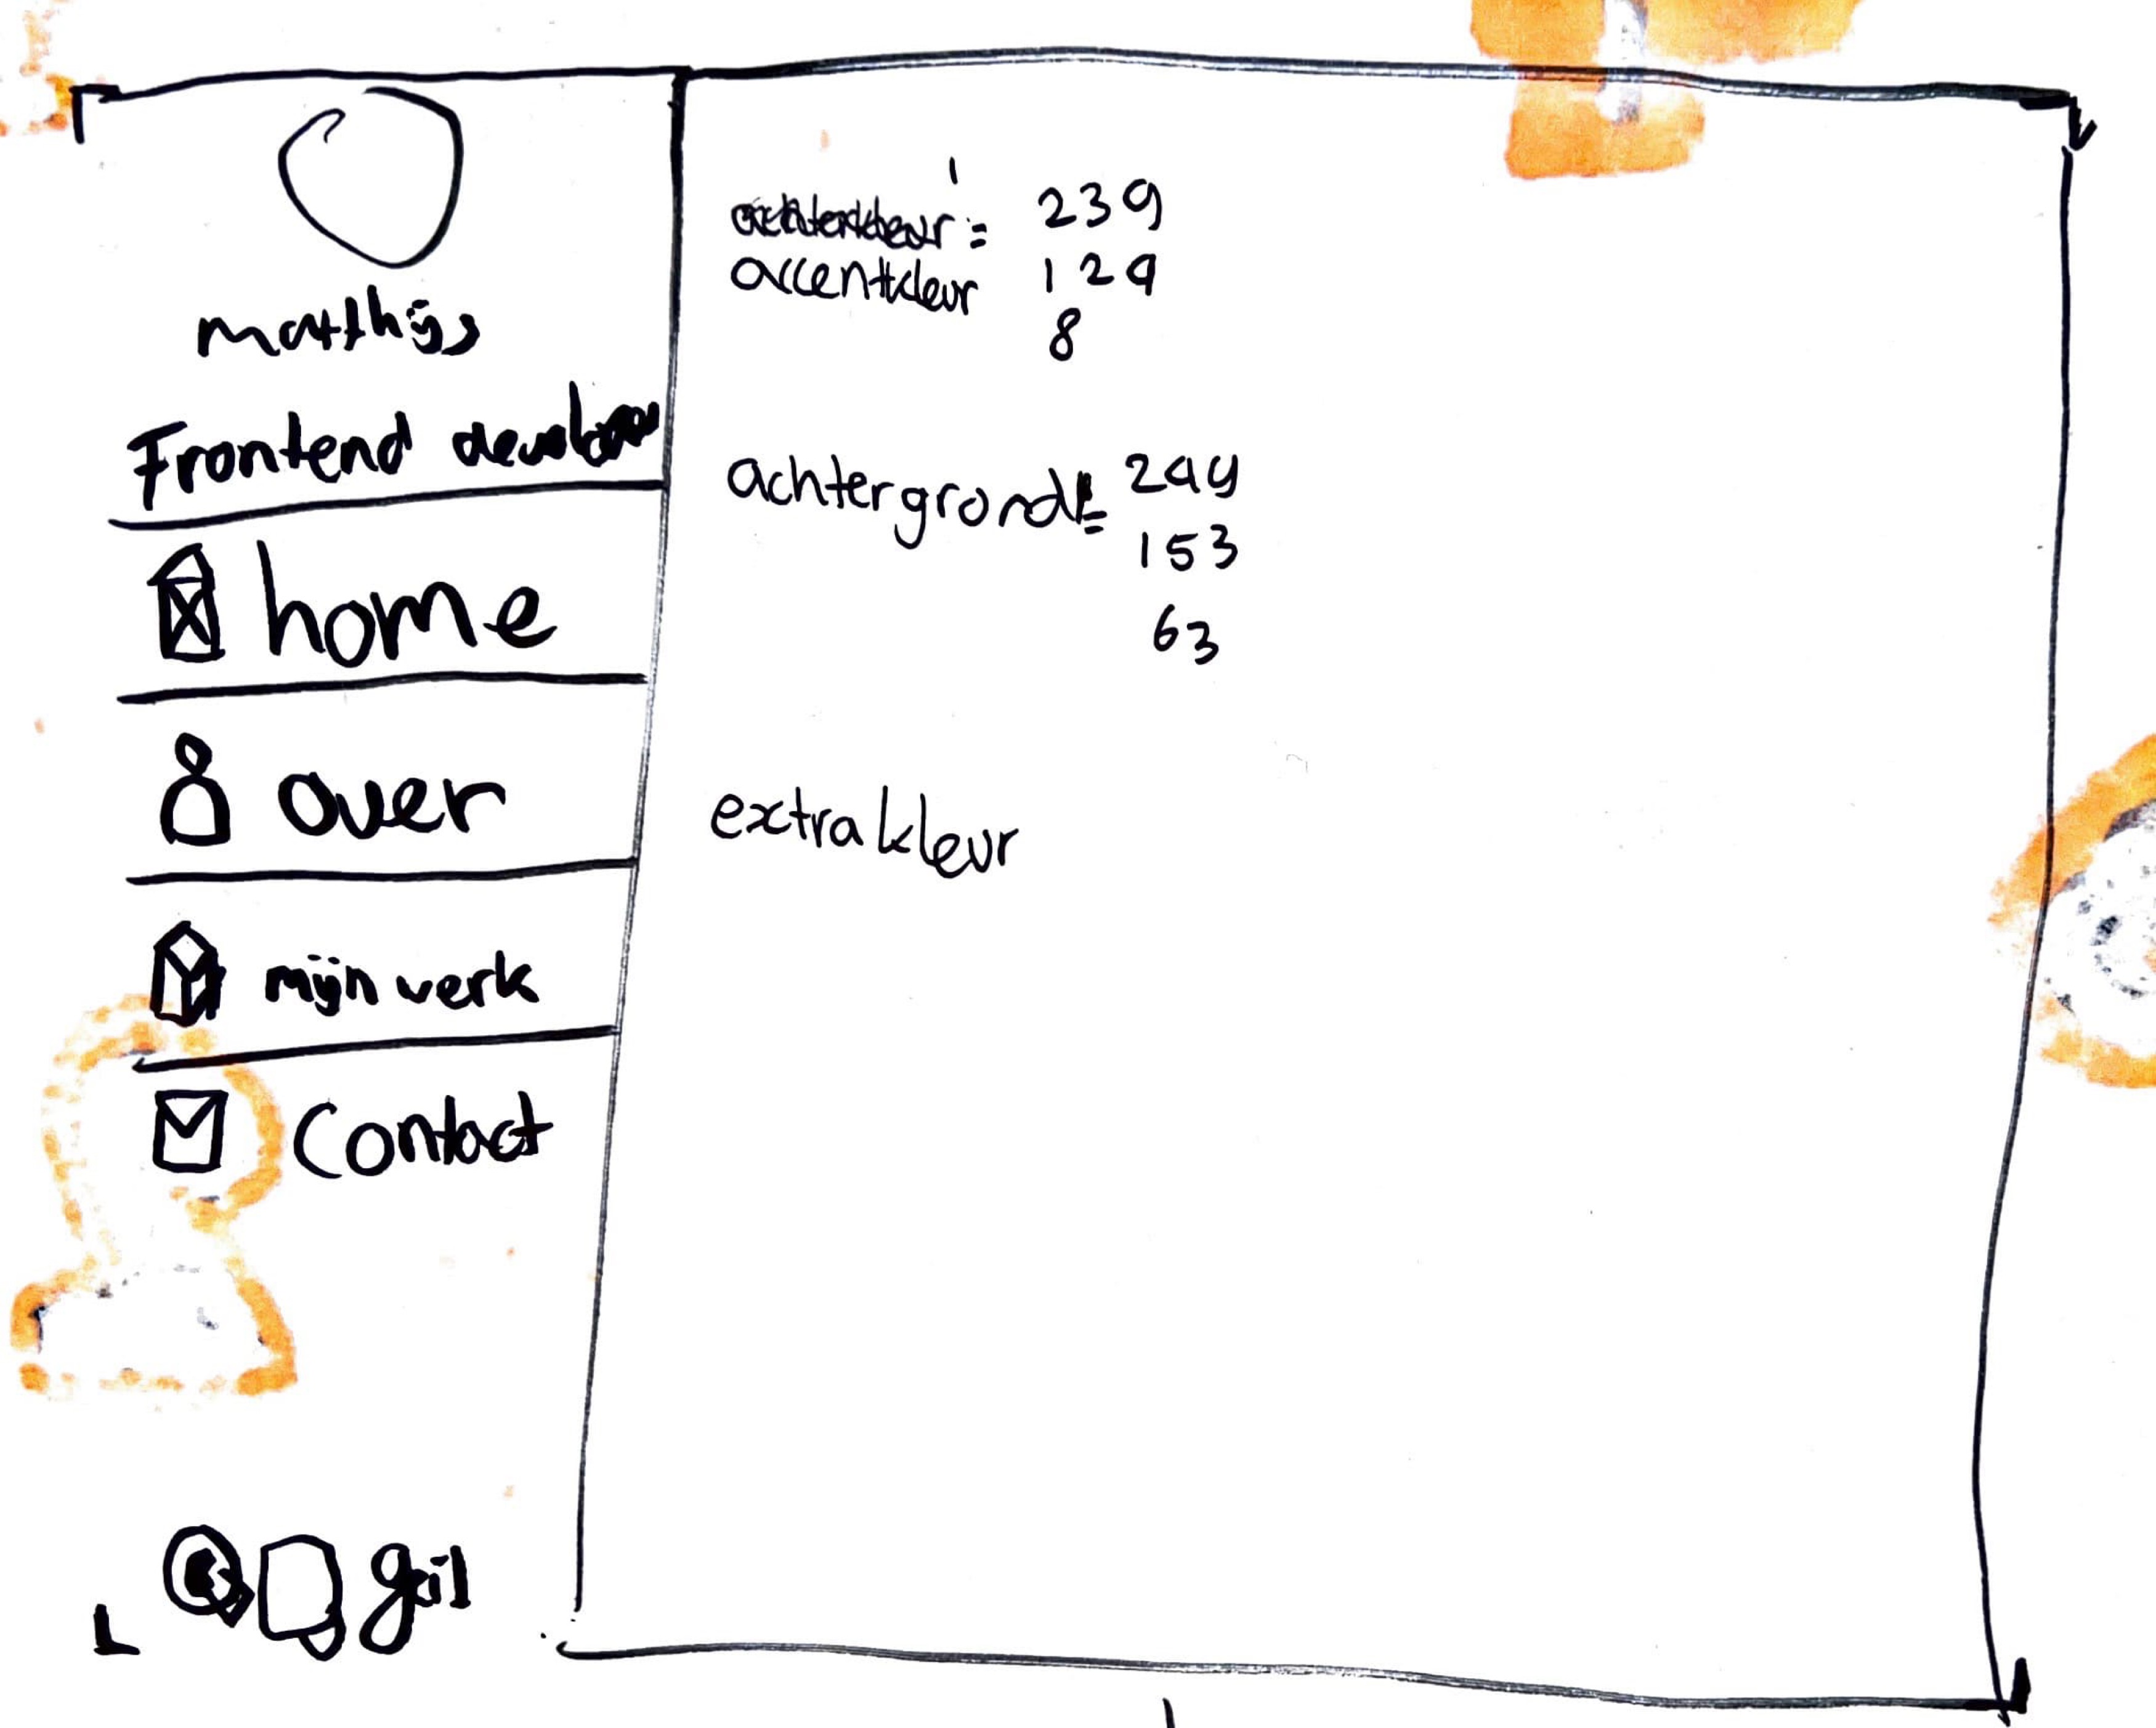 matthijs
Frontend
home
over
mijn werk
Contact
239
accentkleur 129
8
achtergrond = 249
153
63
extra kleur